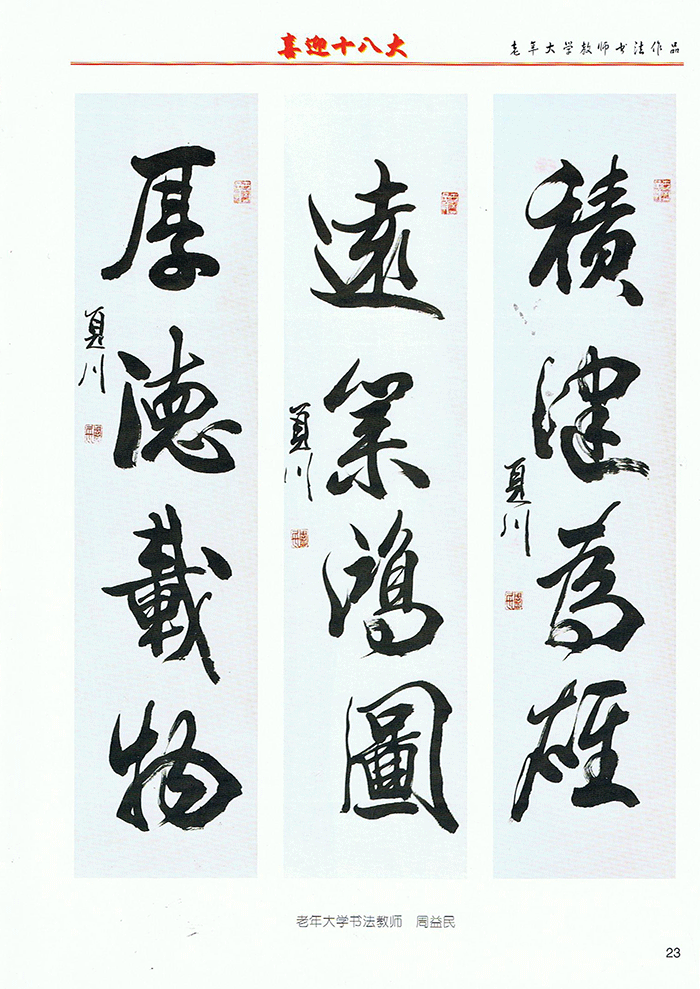 喜迎十八大
老年大学教师书法作品
積健為雄
夏川
遠業鴻圖
夏川
厚德載物
夏川
老年大学书法教师 周益民
23